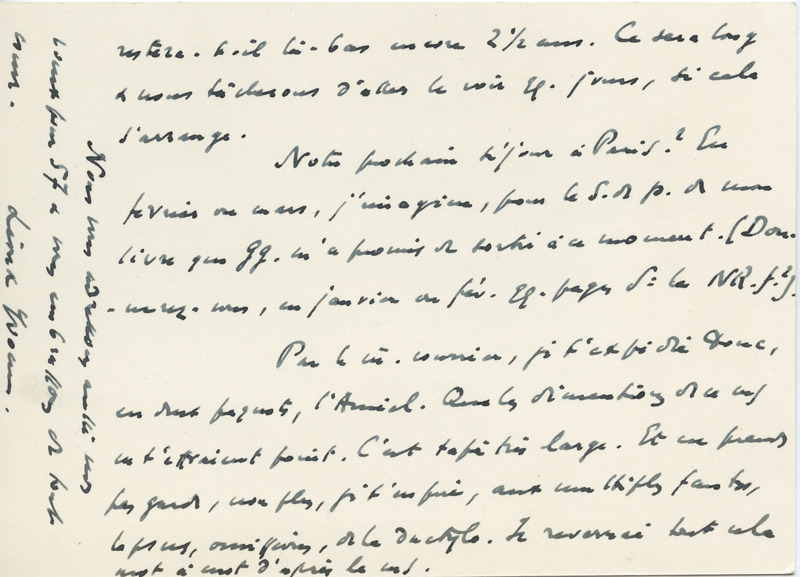 restera-t-il là-bas encore 2 1/2 ans. Ce sera long
& nous tâcherons d'aller le voir qq. jours, si cela
s'arrange.
Notre prochain séjour à Paris? En
février ou mars, j'imagine, pour le S. de p. de mon
livre que Gg. m'a promis de sortir à ce moment. (Don-
-nerez-vous, en janvier ou fév. qq. pages ds la NRf.?).
Par le m. courrier, je t'expédie donc,
en deux paquets, l'Amiel. Que les dimensions de ce ms
ne t'effraient point. C'est tapé très large. Et ne prends
pas garde, non plus, je t'en prie, aux multiples fautes,
lapsus, omissions, de la dactylo. Je reverrai tout cela
mot à mot d'après le ms.
Nous vous adressons aussi nos
voeux pour 57 & vous embrassons de tout
coeur. Yvonne.